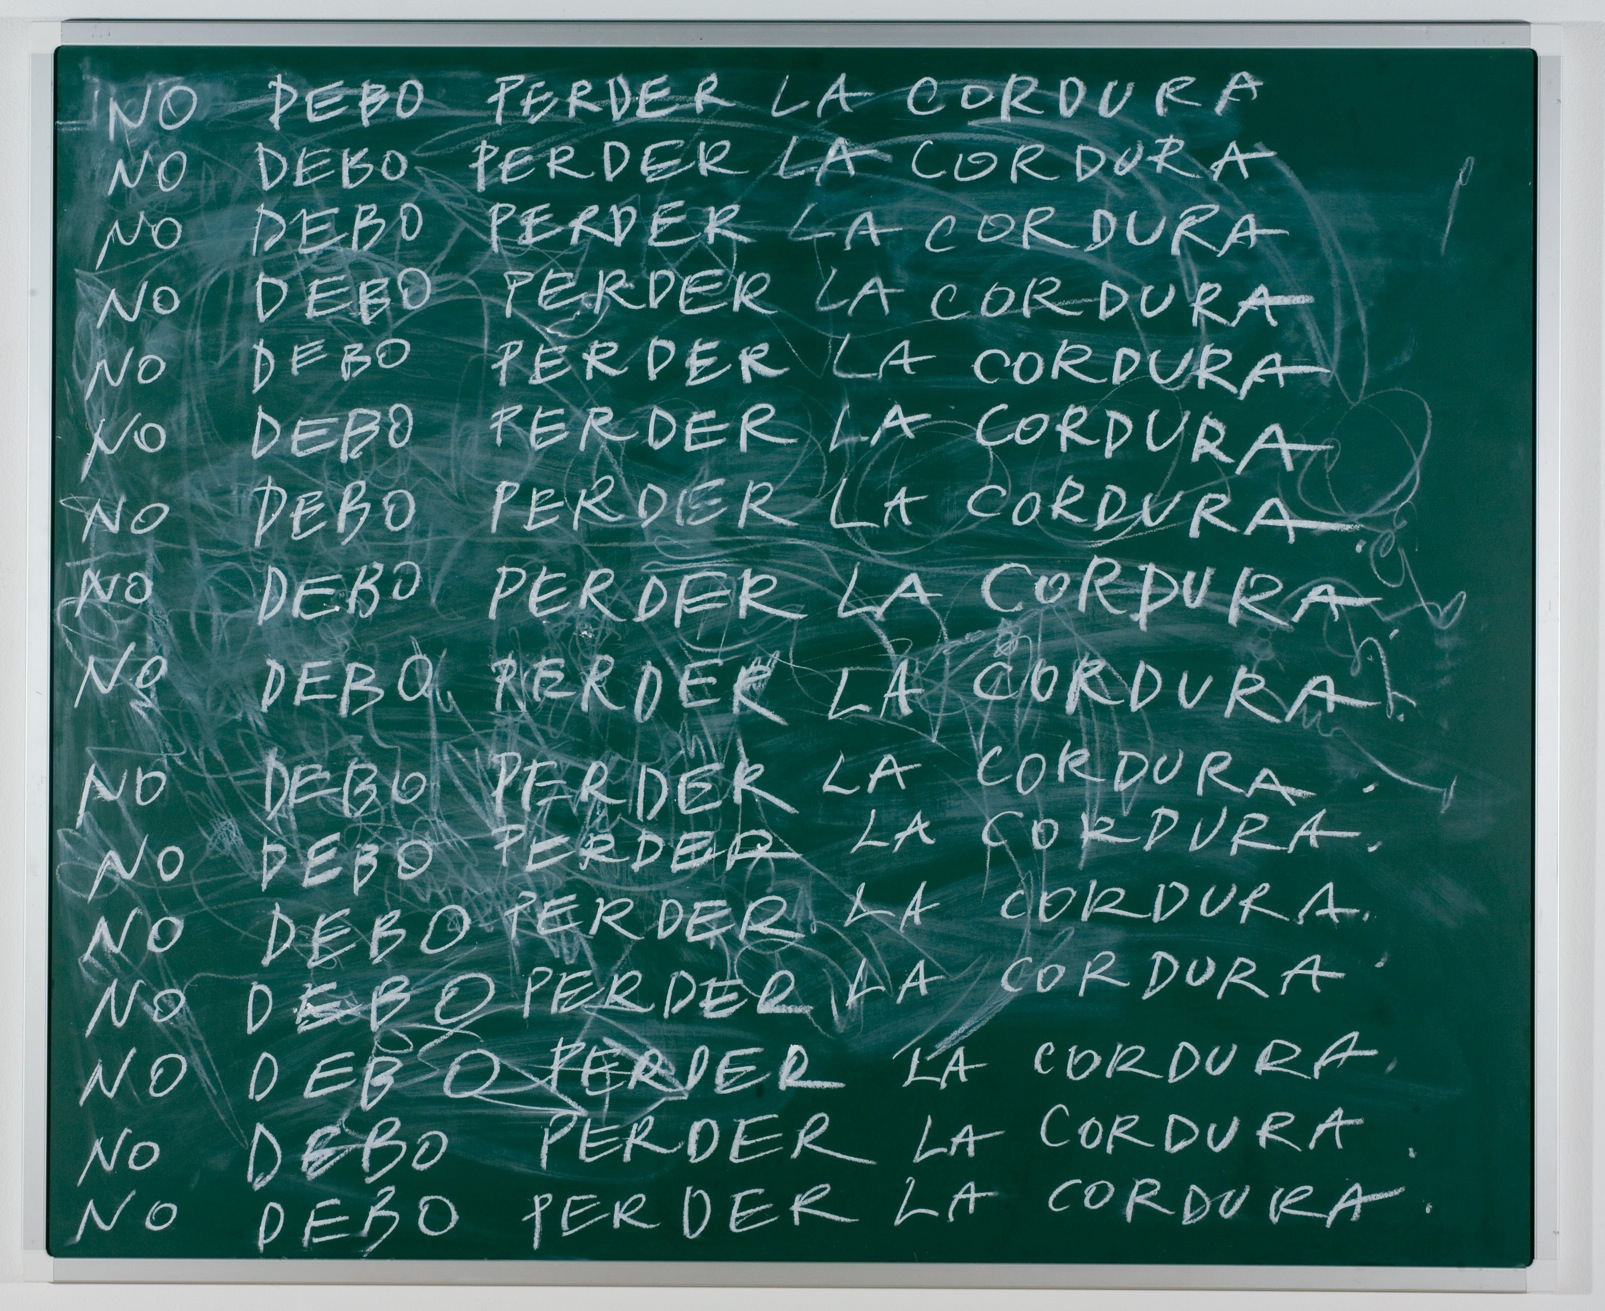 NO DEBO PERDER LA CORDURA
NO DEBO PERDER LA CORDURA
NO DEBO PERDER LA CORDURA
NO DEBO PERDER LA CORDURA
NO DEBO PERDER LA CORDURA
NO DEBO PERDER LA CORDURA
NO DEBO PERDER LA CORDURA.
NO DEBO PERDER LA CORDURA
NO DEBO PERDER LA CORDURA.
NO DEBO PERDER LA CORDURA.
NO DEBO PERDER LA CORDURA.
NO DEBO PERDER LA CORDURA.
NO DEBO PERDER LA CORDURA.
NO DEBO PERDER LA CORDURA.
NO DEBO PERDER LA CORDURA.
NO DEBO PERDER LA CORDURA.